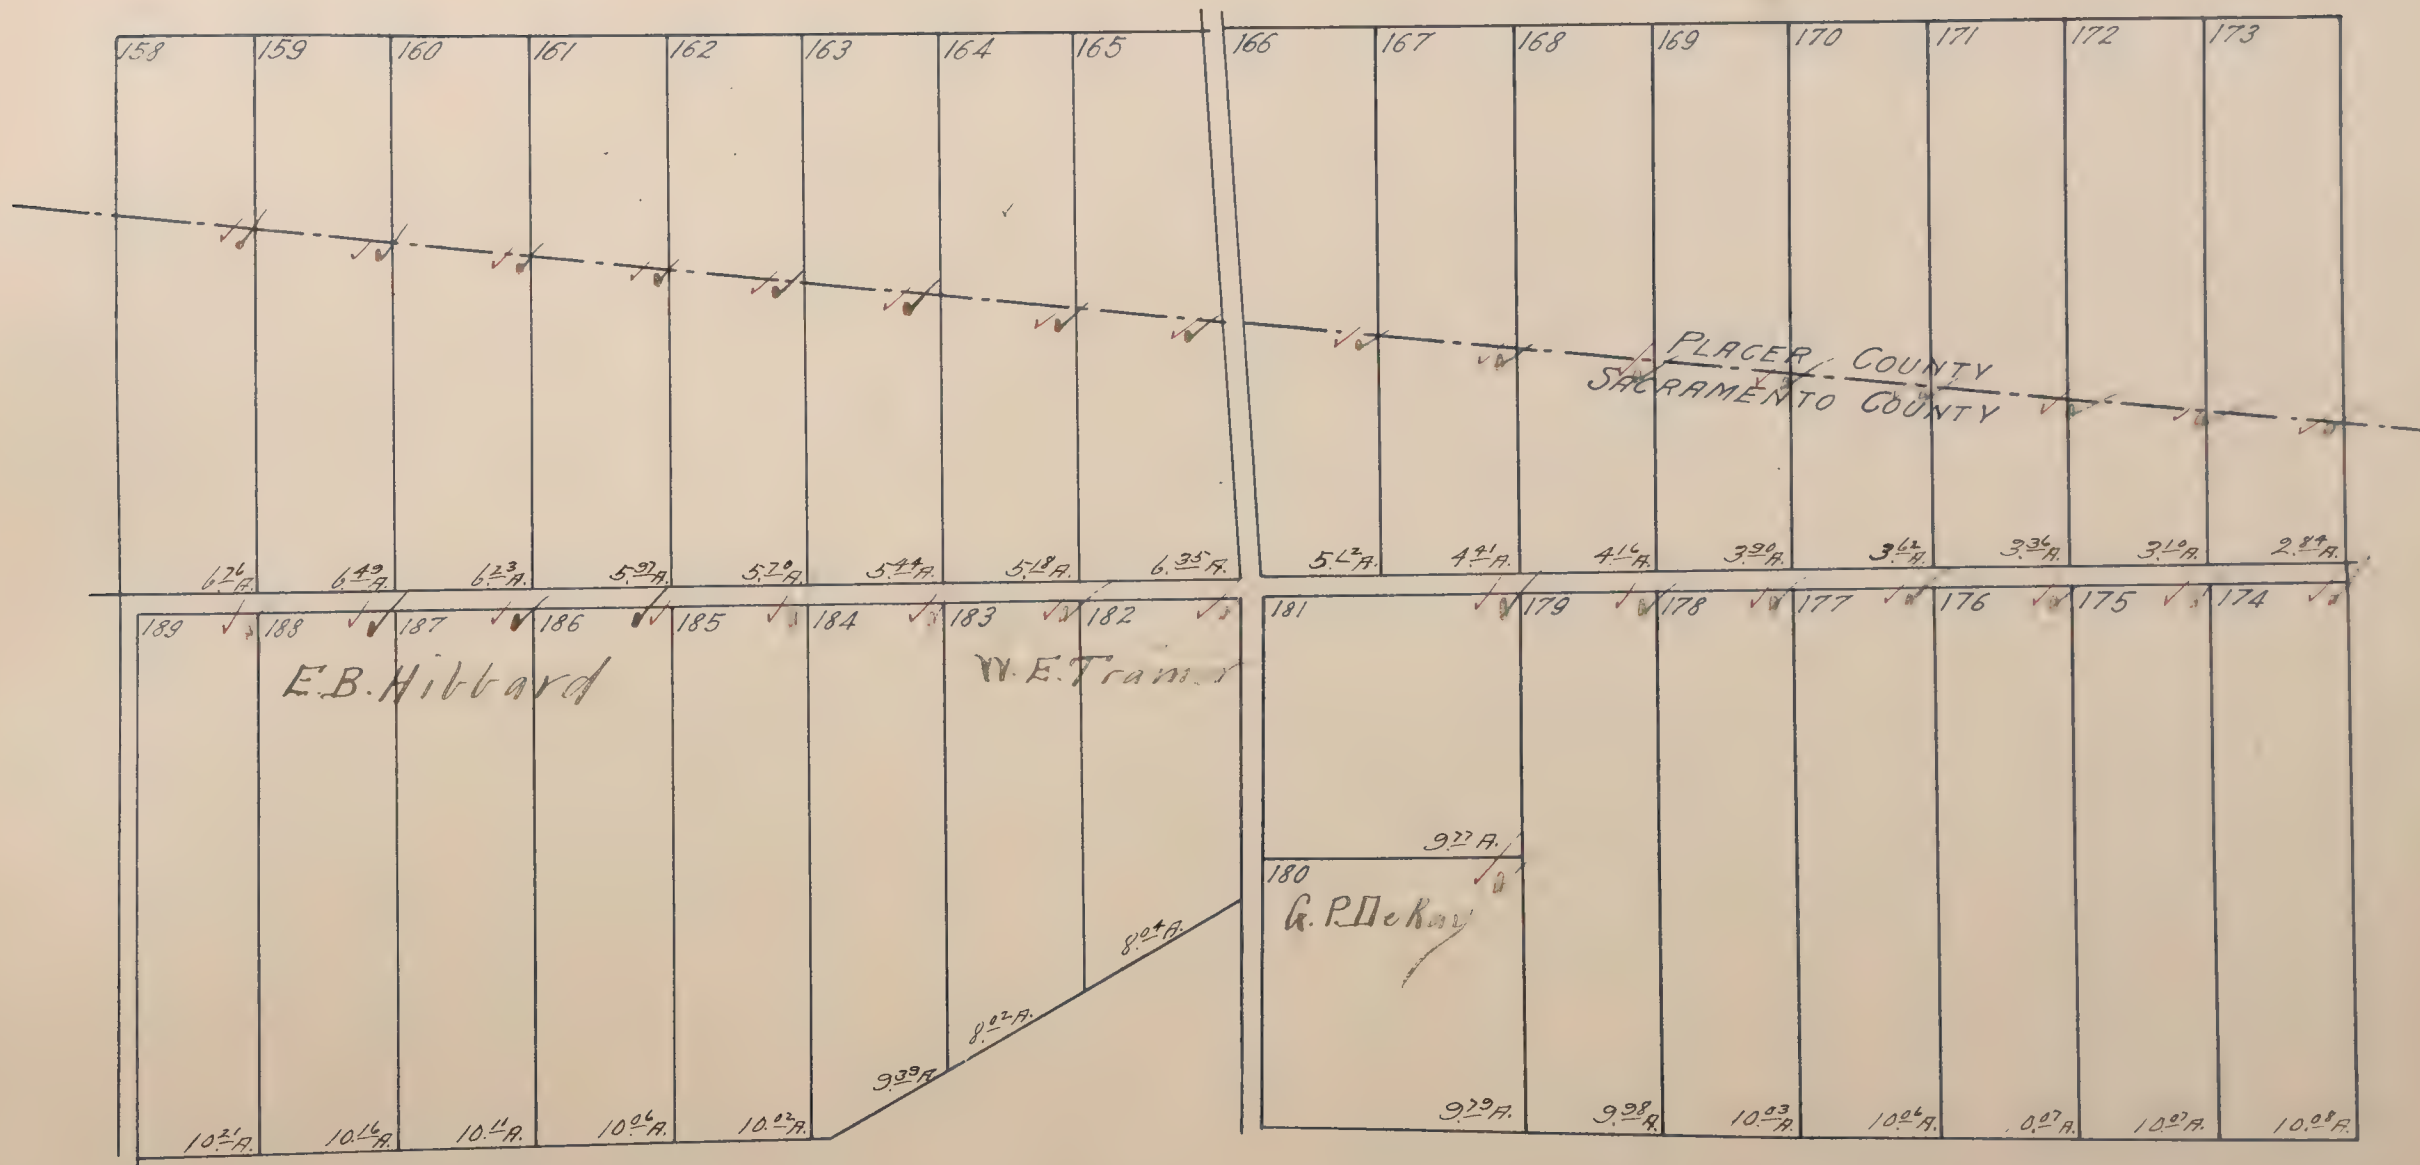 158 159 160 161 162 163 164 165 166 167 168 169 170 171 172 173
PLACER COUNTY
SACRAMENTO COUNTY
6.76 A. 6.49 A. 6.23 A. 5.97 A. 5.70 A. 5.44 A. 5.18 A. 6.35 A. 5.12 A. 4.41 A. 4.16 A. 3.90 A. 3.62 A. 3.36 A. 3.10 A. 2.84 A.
189 188 187 186 185 184 183 182 181 179 178 177 176 175 174
E.B. Hibbard W.E.
9.77 A.
180
G.P. DeKay
8.04 A.
8.02 A.
9.39 A.
10.21 A. 10.16 A. 10.11 A. 10.06 A. 10.02 A. 9.79 A. 9.98 A. 10.03 A. 10.06 A. 0.07 A. 10.07 A. 10.08 A.